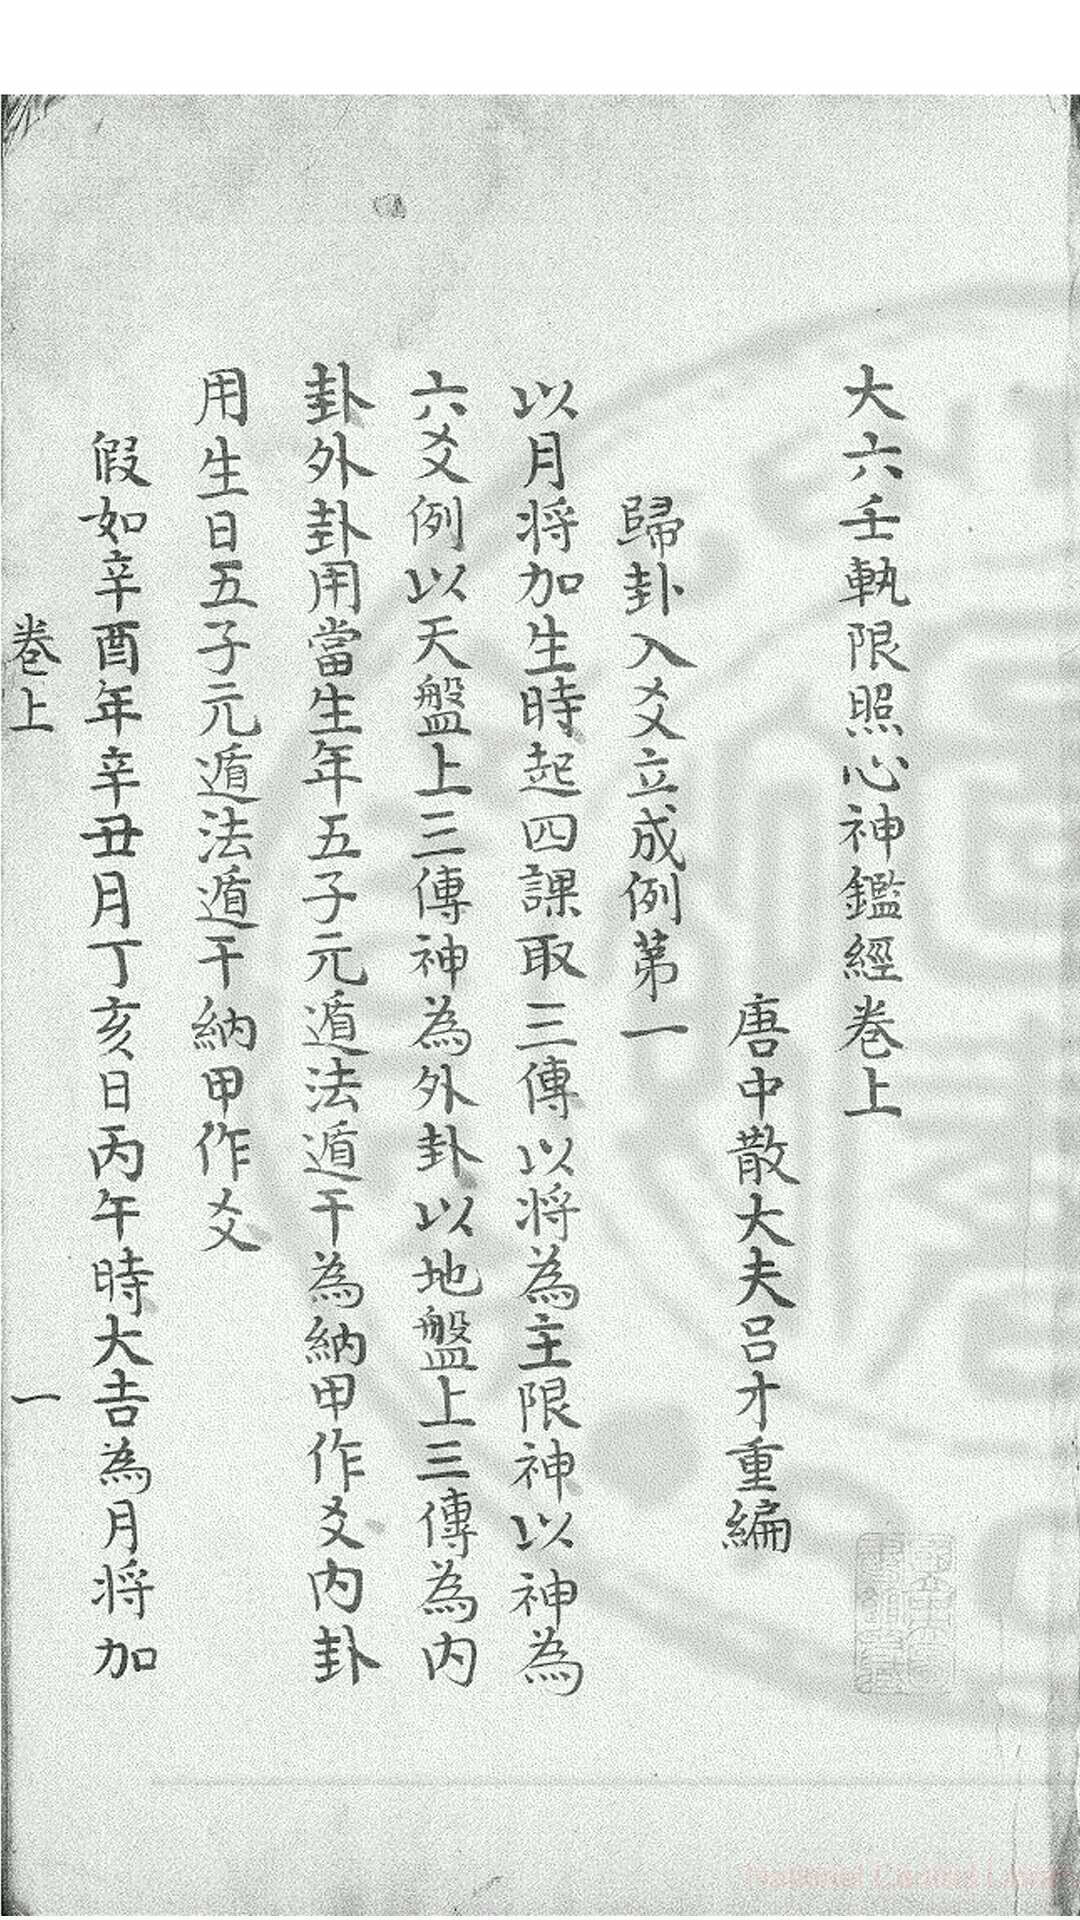 大六壬執限照心神鑑經卷上
唐中散大夫呂才重編
歸卦入爻立成例苐一
以月將加生時起四課取三傳以將為主限神以神為
六爻例以天盤上三傳神為外卦以地盤上三傳為內
卦外卦用當生年五子元遁法遁干為納甲作爻內卦
用生日五子元遁法遁干納甲作爻
假如辛酉年辛丑月丁亥日丙午時大吉為月將加
卷上
一
National Central Library